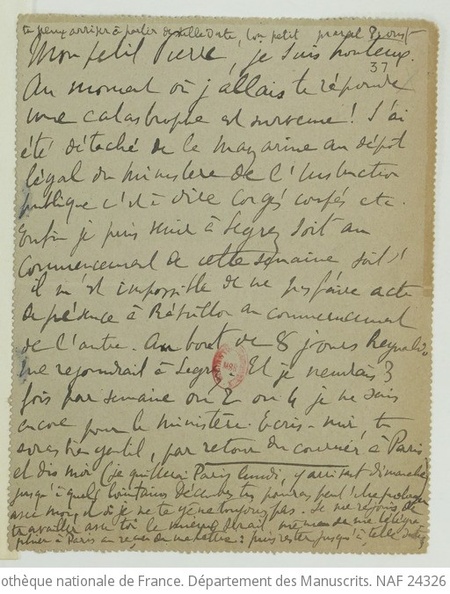 tu peux arriver à partir de telle date, ton petit Marcel Proust
Mon petit Pierre, je suis honteux.
37
Au moment où j'allais te répondre
une catastrophe est survenue ! J'ai
été détaché de la mazarine au dépôt
légal du ministère de l'Instruction
publique c'est à dire congés coupés etc.
Enfin je puis venir à Segrez soit au
commencement de cette semaine soit s'
il m'est impossible de ne pas faire acte
de présence à Réveillon au commencement
de l'autre. Au bout de 8 jours Reynaldo
me rejoindrait à Segrez. Et je viendrais 3
fois par semaine ou 2 ou 4 je ne sais
encore pour le ministère. Ecris-moi, tu
seras bien gentil, par retour du courrier à Paris
et dis moi (je quitterai Paris lundi, y arrivant dimanche
jusqu'à quels lointains décembres tu pourras peut'être prolonger
avec moi, et si je ne te gêne toujours pas. Je me réjouis de
travailler avec toi le
plier à Paris au reçu de ma lettre : puis rester jusqu'à telle date
othèque nationale de France. Département des Manuscrits. NAF 24326